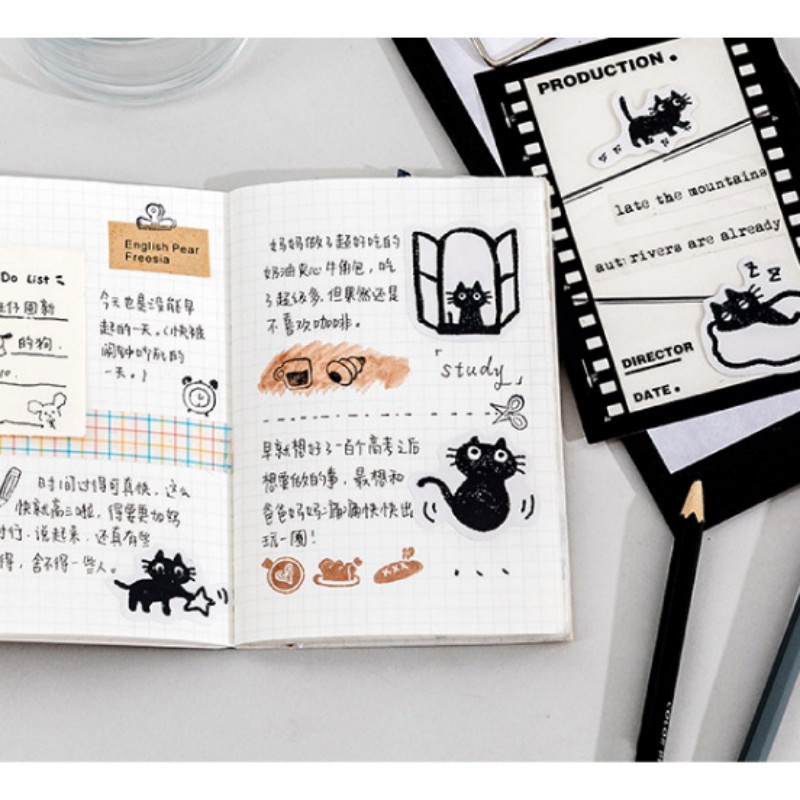 English Pear
Freesia
Do List
的狗.
今天也是没能早
起的一天。(快被
闹钟吵死的
一天。)
时间过得可真快，这么
快就高三啦，得要更加努
力行.说起来，还真有些
得，舍不得一些人。
妈妈做了超好吃的
奶油夹心牛角包，吃
了超级多.但果然还是
不喜欢咖啡。
「study」
早就想好了一百个高考之后
想要做的事，最想和
爸爸妈妈痛痛快快出
玩一圈！
PRODUCTION.
late the mountains
rivers are already
z z
DIRECTOR
DATE.